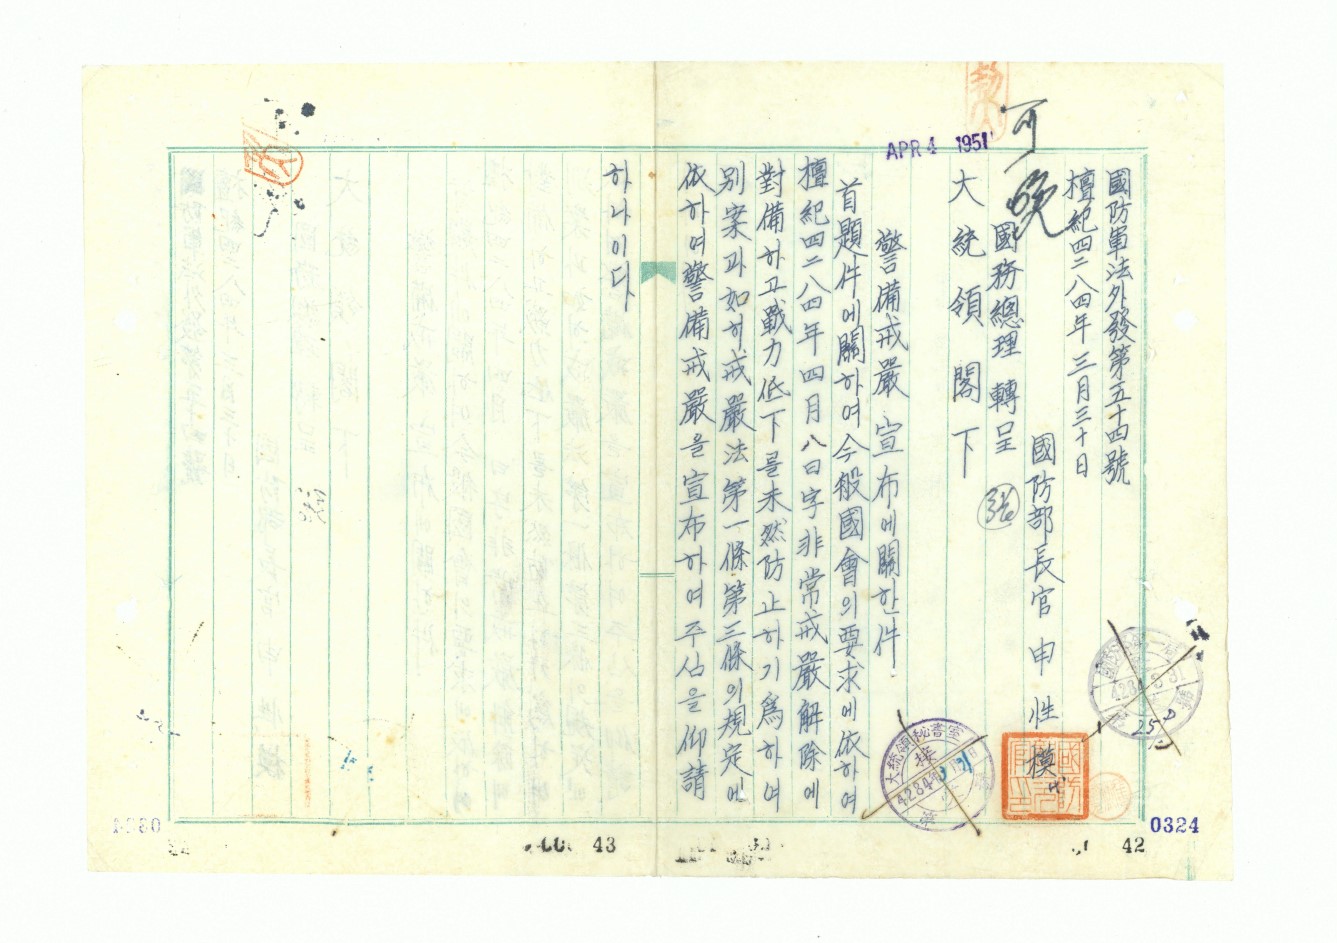 國防軍法外發第五十四號
檀紀四二八四年三月三十日
國防部長官 申性模
可
晩
國務總理 轉呈
大統領閣下
APR 4 1951
警備戒嚴宣布에關한件
首題件에關하여今般國會의要求에依하여
檀紀四二八四年四月八日字非常戒嚴解除에
對備하고戰力低下를未然防止하기爲하여
別案과如히戒嚴法第一條第三條의規定에
依하여警備戒嚴을宣布하여주심을仰請
하나이다
大統領秘書室
接
4284
第
號
4284
252
0324
42
43